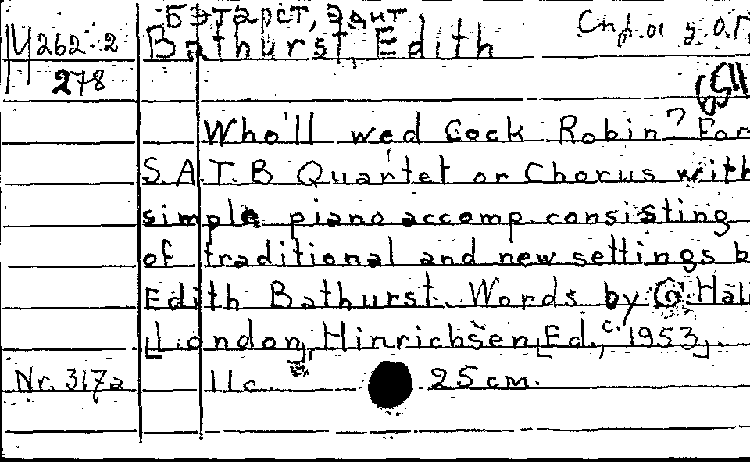 Бэтарст, Эдит
М 262-2 Bathurst, Edith
278
Who'll wed Cock Robin? For
S.A.T.B Quartet or Chorus with
simple piano accomp. consisting
of traditional and new settings b
Edith Bathurst. Words by G. Hal
[London], Hinrichsen Ed., [c. 1953].
Nr. 317a 11c. 25 cm.